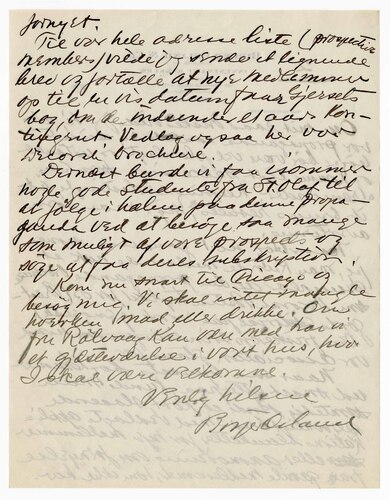 fornyet.
Til vor hele adresse liste (prospective
members) vilde jeg sende et lignende
brev og fortælle at nye medlemmer
op til en vis datum faar Gjersets
bog, om de indsender et aars kon-
tingent. Vedlæg ogsaa her vor
Decorah brochure.
Dernæst burde vi faa i sommer
nogle gode studenter fra St. Olaf til
at følge i hælene paa denne propa-
ganda ved at besøge saa mange
som muligt af vore prospects og
søge at faa deres subskription.
Kom nu snart til Chicago og
besøg mig. Vi skal intet mangle
hverken mad eller drikke. Om
fru Rølvaag kan være med har vi
et gjesteværelse i vort hus, hvor
I skal være velkomne.
Venlig hilsen
Birger Osland